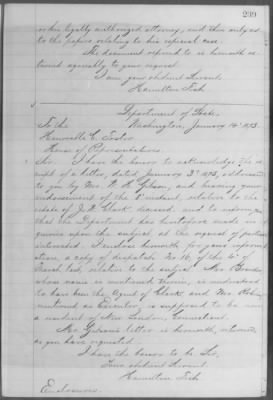 299
or her legally authorized attorney, and then only as
to the papers relating to his especial case.
The document referred to is herewith re-
turned agreeably to your request.
I am your obedient Servant
Hamilton Fish
Department of State
To the Washington, January 14th 1873.
Honorable C. Foster
House of Representatives.
Sir, I have the honor to acknowledge the re-
ceipt of a letter, dated January 3d 1873, addressed
to you by Mrs. Gibson, and bearing your
endorsement of the instant relative to the
estate of J. Clark, deceased, and to inform you
that the Department has heretofore made in-
quiries upon the subject at the request of parties
interested. I enclose herewith for your informa-
tion, a copy of despatch No. 16, of the 4th of
March last, relative to the subject. Mr.
whose name is mentioned therein, is understood
to have been the Agent of Clark, and Mr.
named as Executor, is supposed to be
a resident of New London, Connecticut.
Mrs. Gibson's letter is herewith, returned
as you have requested.
I have the honor to be Sir,
Your obedient Servant
Hamilton Fish
Enclosures